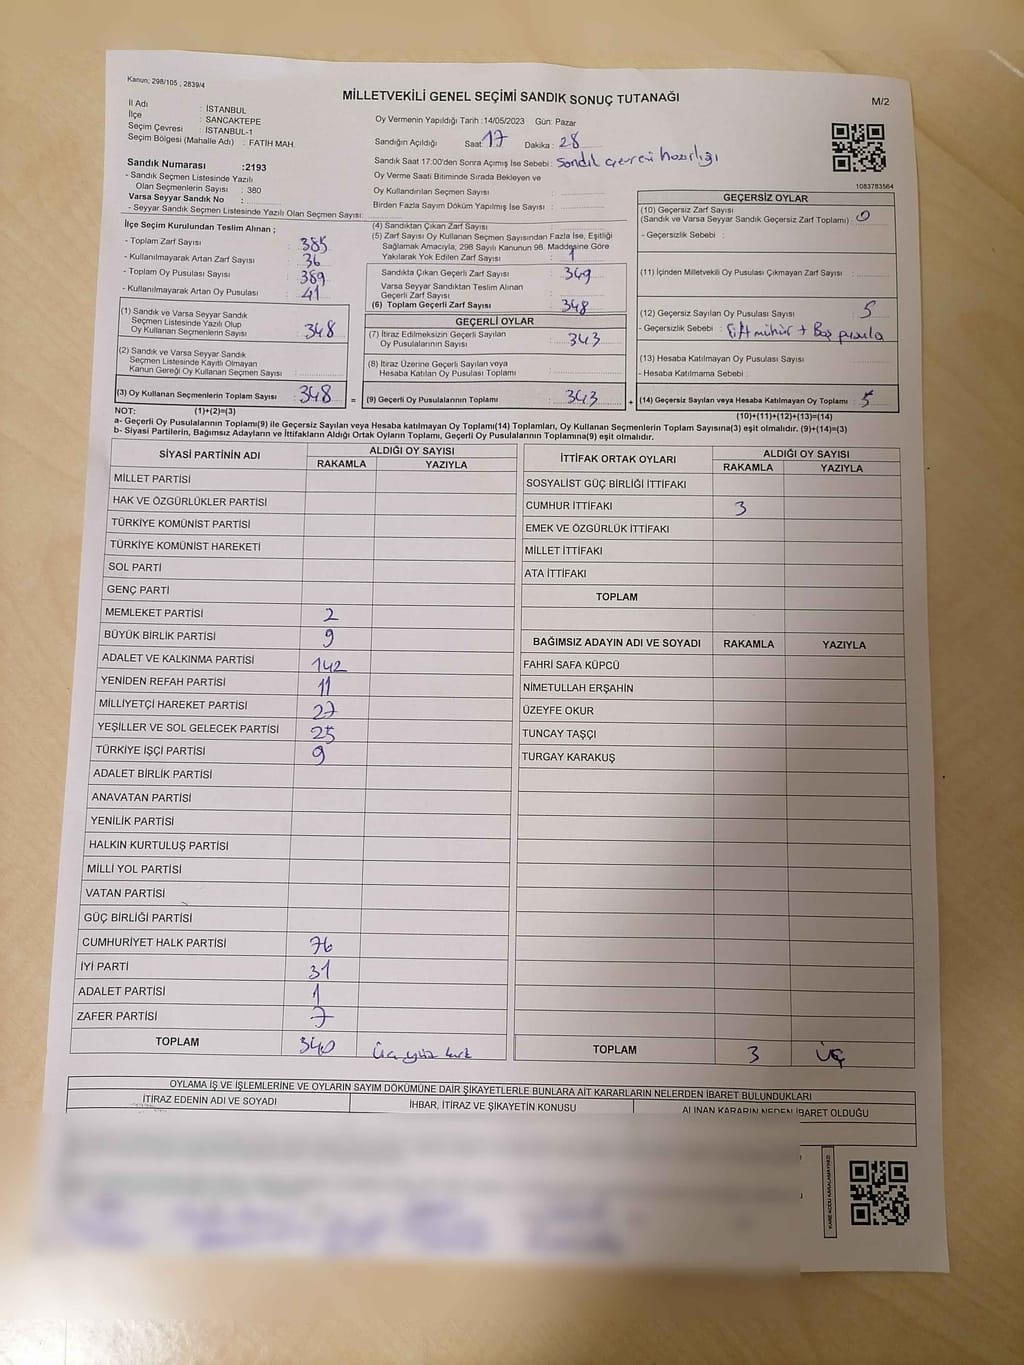 Kanun; 298/105 , 2839/4
MİLLETVEKİLİ GENEL SEÇİMİ SANDIK SONUÇ TUTANAĞI
M/2
İl Adı : İSTANBUL
İlçe : SANCAKTEPE
Seçim Çevresi : İSTANBUL-1
Seçim Bölgesi (Mahalle Adı) : FATIH MAH.
Sandık Numarası :2193
- Sandık Seçmen Listesinde Yazılı
Olan Seçmenlerin Sayısı : 380
Varsa Seyyar Sandık No :
- Seyyar Sandık Seçmen Listesinde Yazılı Olan Seçmen Sayısı:
Oy Vermenin Yapıldığı Tarih :14/05/2023 Gün: Pazar
Sandığın Açıldığı Saat: 17 Dakika : 28
Sandık Saat 17:00'den Sonra Açımış İse Sebebi : sandık çevresi hazırlığı
Oy Verme Saati Bitiminde Sırada Bekleyen ve
Oy Kullandırılan Seçmen Sayısı :
Birden Fazla Sayım Döküm Yapılmış İse Sayısı :
1083783564
İlçe Seçim Kurulundan Teslim Alınan ;
- Toplam Zarf Sayısı : 385
- Kullanılmayarak Artan Zarf Sayısı : 36
- Toplam Oy Pusulası Sayısı : 389
- Kullanılmayarak Artan Oy Pusulası : 41
(1) Sandık ve Varsa Seyyar Sandık
Seçmen Listesinde Yazılı Olup
Oy Kullanan Seçmenlerin Sayısı : 348
(2) Sandık ve Varsa Seyyar Sandık
Seçmen Listesinde Kayıtlı Olmayan
Kanun Gereği Oy Kullanan Seçmen Sayısı :
(3) Oy Kullanan Seçmenlerin Toplam Sayısı : 348 =
(4) Sandıktan Çıkan Zarf Sayısı :
(5) Zarf Sayısı Oy Kullanan Seçmen Sayısından Fazla İse, Eşitliği
Sağlamak Amacıyla, 298 Sayılı Kanunun 98. Maddesine Göre
Yakılarak Yok Edilen Zarf Sayısı : 1
Sandıkta Çıkan Geçerli Zarf Sayısı : 349
Varsa Seyyar Sandıktan Teslim Alınan
Geçerli Zarf Sayısı :
(6) Toplam Geçerli Zarf Sayısı : 348
GEÇERLİ OYLAR
(7) İtiraz Edilmeksizin Geçerli Sayılan
Oy Pusulalarının Sayısı : 343
(8) İtiraz Üzerine Geçerli Sayılan veya
Hesaba Katılan Oy Pusulası Toplamı :
(9) Geçerli Oy Pusulalarının Toplamı : 343 +
GEÇERSİZ OYLAR
(10) Geçersiz Zarf Sayısı
(Sandık ve Varsa Seyyar Sandık Geçersiz Zarf Toplamı) : 0
- Geçersizlik Sebebi :
(11) İçinden Milletvekili Oy Pusulası Çıkmayan Zarf Sayısı :
(12) Geçersiz Sayılan Oy Pusulası Sayısı : 5
- Geçersizlik Sebebi : Çift mühür + Boş pusula
(13) Hesaba Katılmayan Oy Pusulası Sayısı :
- Hesaba Katılmama Sebebi :
(14) Geçersiz Sayılan veya Hesaba Katılmayan Oy Toplamı : 5
NOT: (1)+(2)=(3)
(10)+(11)+(12)+(13)=(14)
a- Geçerli Oy Pusulalarının Toplamı(9) ile Geçersiz Sayılan veya Hesaba katılmayan Oy Toplamı(14) Toplamları, Oy Kullanan Seçmenlerin Toplam Sayısına(3) eşit olmalıdır. (9)+(14)=(3)
b- Siyasi Partilerin, Bağımsız Adayların ve İttifakların Aldığı Ortak Oyların Toplamı, Geçerli Oy Pusulalarının Toplamına(9) eşit olmalıdır.
SİYASİ PARTİNİN ADI ALDIĞI OY SAYISI
RAKAMLA YAZIYLA
MİLLET PARTİSİ
HAK VE ÖZGÜRLÜKLER PARTİSİ
TÜRKİYE KOMÜNİST PARTİSİ
TÜRKİYE KOMÜNİST HAREKETİ
SOL PARTİ
GENÇ PARTİ
MEMLEKET PARTİSİ 2
BÜYÜK BİRLİK PARTİSİ 9
ADALET VE KALKINMA PARTİSİ 142
YENİDEN REFAH PARTİSİ 11
MİLLİYETÇİ HAREKET PARTİSİ 27
YEŞİLLER VE SOL GELECEK PARTİSİ 25
TÜRKİYE İŞÇİ PARTİSİ 9
ADALET BİRLİK PARTİSİ
ANAVATAN PARTİSİ
YENİLİK PARTİSİ
HALKIN KURTULUŞ PARTİSİ
MİLLİ YOL PARTİSİ
VATAN PARTİSİ
GÜÇ BİRLİĞİ PARTİSİ
CUMHURİYET HALK PARTİSİ 76
İYİ PARTİ 31
ADALET PARTİSİ 1
ZAFER PARTİSİ 7
TOPLAM 340 Üç yüz kırk
İTTİFAK ORTAK OYLARI ALDIĞI OY SAYISI
RAKAMLA YAZIYLA
SOSYALİST GÜÇ BİRLİĞİ İTTİFAKI
CUMHUR İTTİFAKI 3
EMEK VE ÖZGÜRLÜK İTTİFAKI
MİLLET İTTİFAKI
ATA İTTİFAKI
TOPLAM
BAĞIMSIZ ADAYIN ADI VE SOYADI RAKAMLA YAZIYLA
FAHRİ SAFA KÜPCÜ
NİMETULLAH ERŞAHİN
ÜZEYFE OKUR
TUNCAY TAŞÇI
TURGAY KARAKUŞ
TOPLAM 3 ÜÇ
OYLAMA İŞ VE İŞLEMLERİNE VE OYLARIN SAYIM DÖKÜMÜNE DAİR ŞİKAYETLERLE BUNLARA AİT KARARLARIN NELERDEN İBARET BULUNDUKLARI
İTİRAZ EDENİN ADI VE SOYADI
İHBAR, İTİRAZ VE ŞİKAYETİN KONUSU
ALINAN KARARIN NEDEN İBARET OLDUĞU
KARE KODU KARALAMAYINIZ!